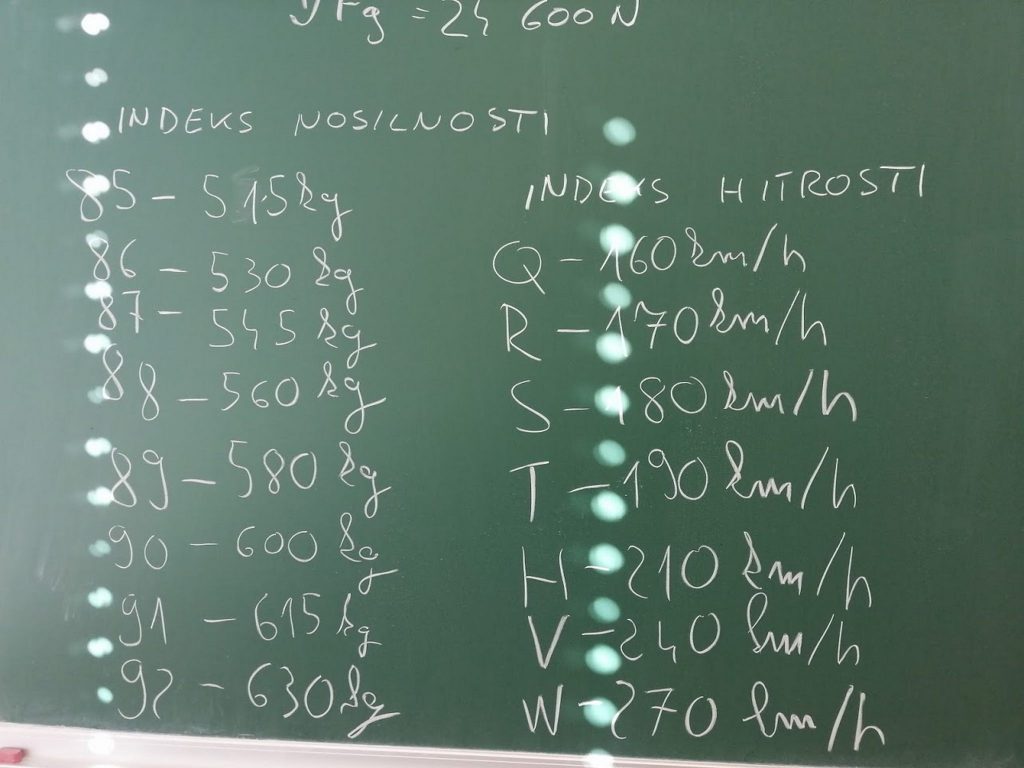 Fg = 24 600 N
INDEKS NOSILNOSTI
85 - 515 kg
86 - 530 kg
87 - 545 kg
88 - 560 kg
89 - 580 kg
90 - 600 kg
91 - 615 kg
92 - 630 kg
INDEKS HITROSTI
Q - 160 km/h
R - 170 km/h
S - 180 km/h
T - 190 km/h
H - 210 km/h
V - 240 km/h
W - 270 km/h